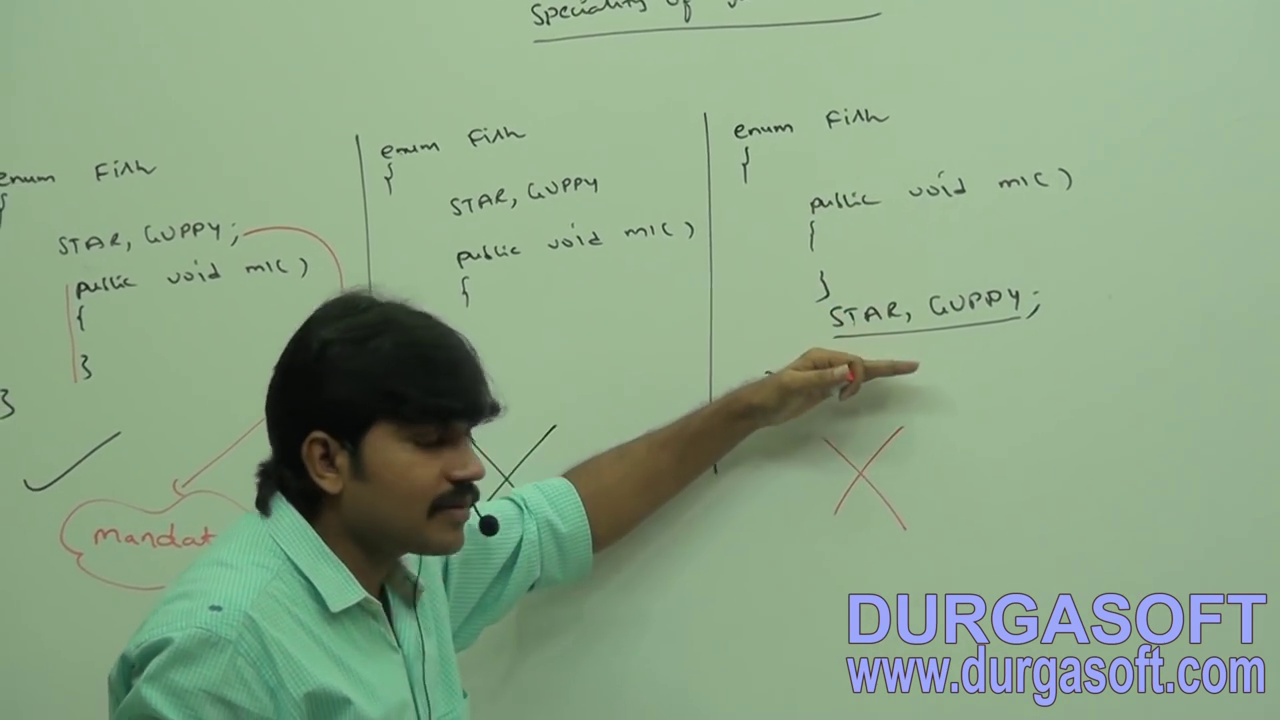 Speciality of
enum Fish
{
STAR, GUPPY;
public void m1( )
{
}
}
mandat
enum Fish
{
STAR, GUPPY
public void m1( )
{
enum Fish
{
public void m1( )
{
}
STAR, GUPPY;
DURGASOFT
www.durgasoft.com